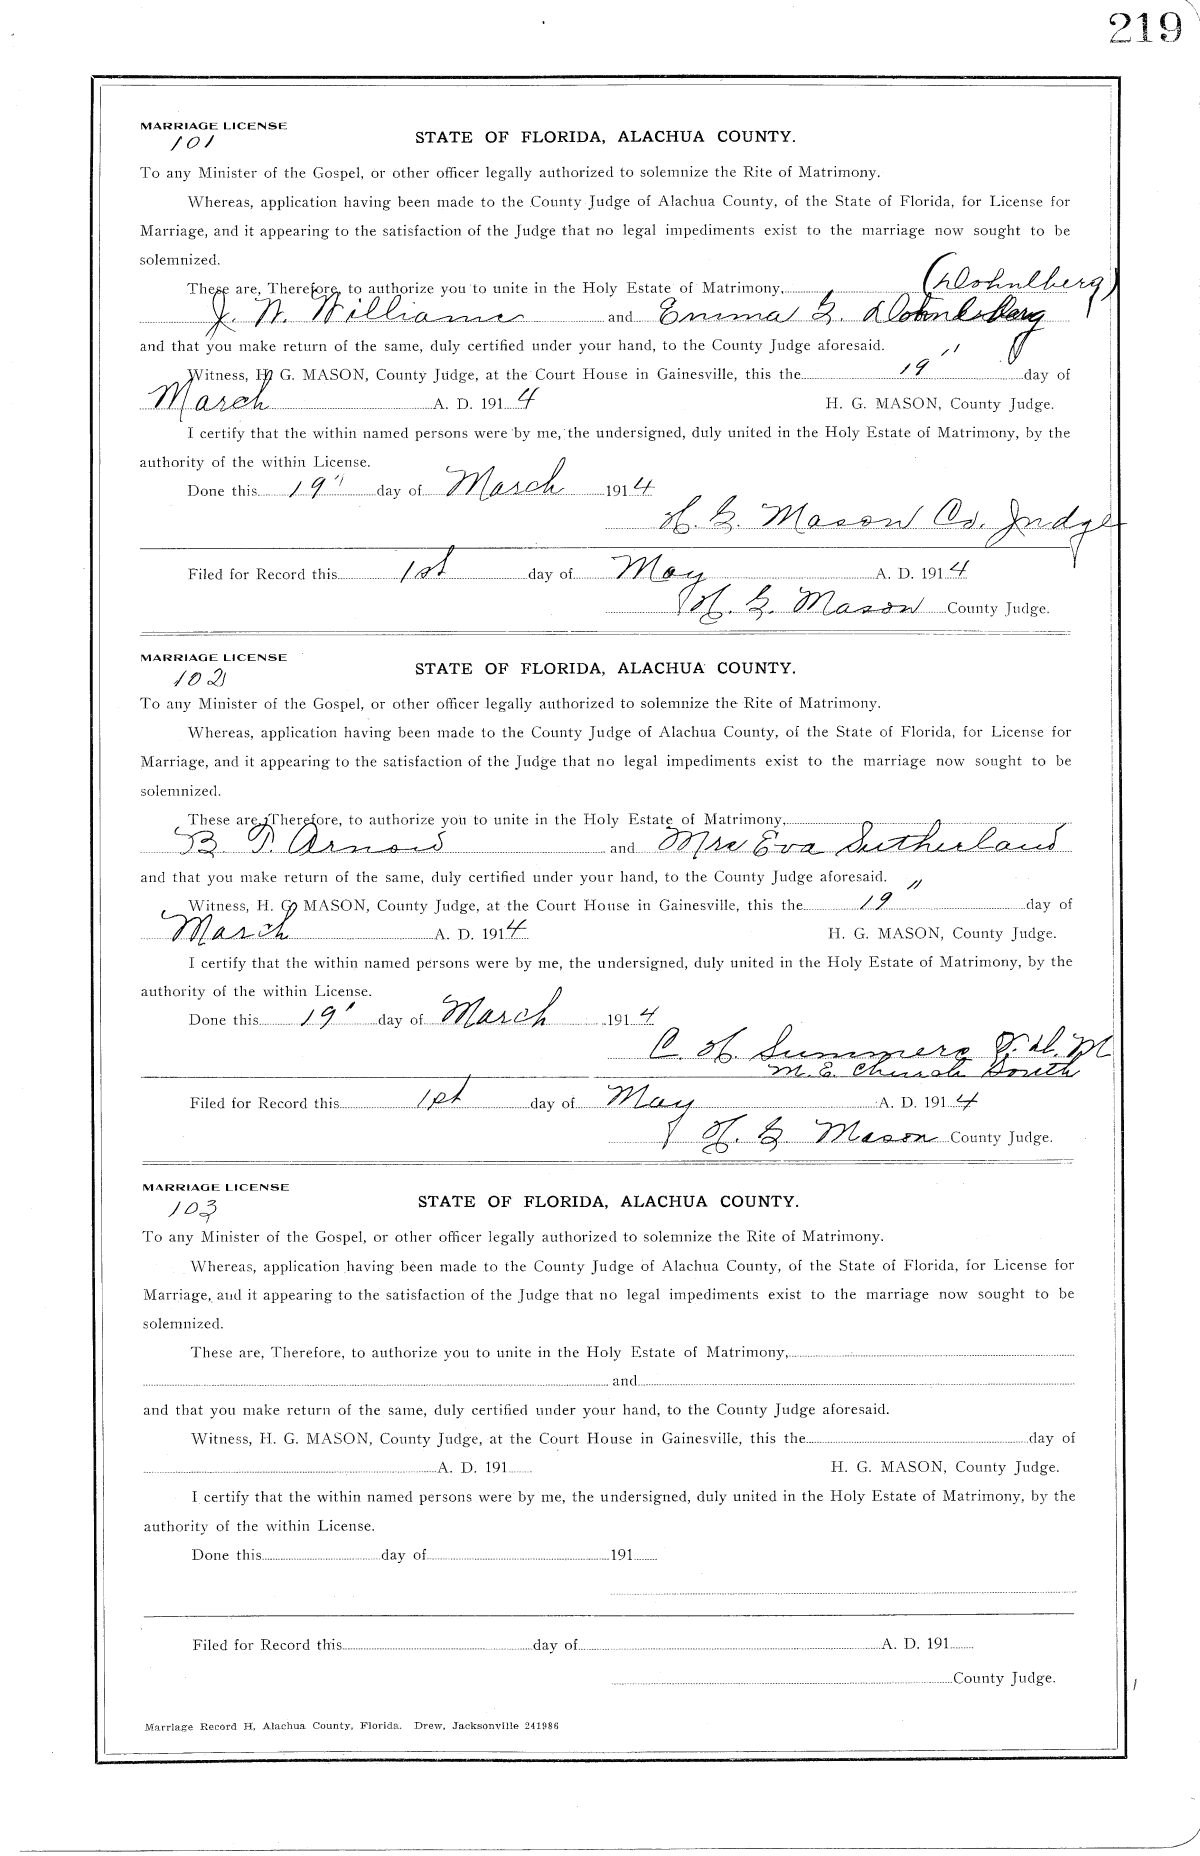 219
MARRIAGE LICENSE
101
STATE OF FLORIDA, ALACHUA COUNTY.
To any Minister of the Gospel, or other officer legally authorized to solemnize the Rite of Matrimony.
Whereas, application having been made to the County Judge of Alachua County, of the State of Florida, for License for
Marriage, and it appearing to the satisfaction of the Judge that no legal impediments exist to the marriage now sought to be
solemnized.
These are, Therefore, to authorize you to unite in the Holy Estate of Matrimony,
J. W. Williams and Emma G.
and that you make return of the same, duly certified under your hand, to the County Judge aforesaid.
Witness, H. G. MASON, County Judge, at the Court House in Gainesville, this the 19" day of
March A. D. 1914 H. G. MASON, County Judge.
I certify that the within named persons were by me, the undersigned, duly united in the Holy Estate of Matrimony, by the
authority of the within License.
Done this 19" day of March 1914
H. G. Mason Co. Judge
Filed for Record this 1st day of May A. D. 1914
H. G. Mason County Judge.
MARRIAGE LICENSE
102
STATE OF FLORIDA, ALACHUA COUNTY.
To any Minister of the Gospel, or other officer legally authorized to solemnize the Rite of Matrimony.
Whereas, application having been made to the County Judge of Alachua County, of the State of Florida, for License for
Marriage, and it appearing to the satisfaction of the Judge that no legal impediments exist to the marriage now sought to be
solemnized.
These are, Therefore, to authorize you to unite in the Holy Estate of Matrimony,
B. T. Arnow and Mrs Eva Sutherland
and that you make return of the same, duly certified under your hand, to the County Judge aforesaid.
Witness, H. G. MASON, County Judge, at the Court House in Gainesville, this the 19" day of
March A. D. 1914 H. G. MASON, County Judge.
I certify that the within named persons were by me, the undersigned, duly united in the Holy Estate of Matrimony, by the
authority of the within License.
Done this 19' day of March 1914
C. H. Summers
M. E. Church South
Filed for Record this 1st day of May A. D. 1914
H. G. Mason County Judge.
MARRIAGE LICENSE
103
STATE OF FLORIDA, ALACHUA COUNTY.
To any Minister of the Gospel, or other officer legally authorized to solemnize the Rite of Matrimony.
Whereas, application having been made to the County Judge of Alachua County, of the State of Florida, for License for
Marriage, and it appearing to the satisfaction of the Judge that no legal impediments exist to the marriage now sought to be
solemnized.
These are, Therefore, to authorize you to unite in the Holy Estate of Matrimony,
and
and that you make return of the same, duly certified under your hand, to the County Judge aforesaid.
Witness, H. G. MASON, County Judge, at the Court House in Gainesville, this the day of
A. D. 191 H. G. MASON, County Judge.
I certify that the within named persons were by me, the undersigned, duly united in the Holy Estate of Matrimony, by the
authority of the within License.
Done this day of 191
Filed for Record this day of A. D. 191
County Judge.
Marriage Record H, Alachua County, Florida. Drew, Jacksonville 241986